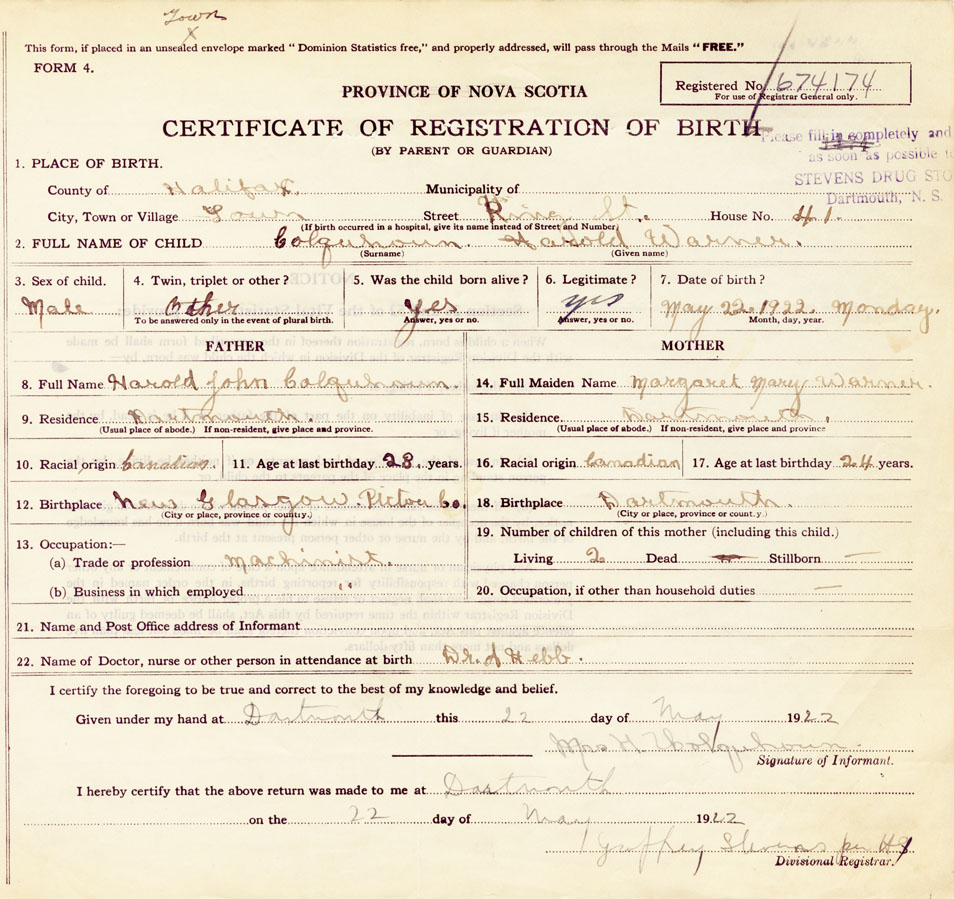 Town
X
This form, if placed in an unsealed envelope marked "Dominion Statistics free," and properly addressed, will pass through the Mails "FREE."
FORM 4.
Registered No. 674174
For use of Registrar General only.
PROVINCE OF NOVA SCOTIA
CERTIFICATE OF REGISTRATION OF BIRTH
(BY PARENT OR GUARDIAN)
Please fill in completely and
as soon as possible t
STEVENS DRUG STO
Dartmouth, N. S.
1. PLACE OF BIRTH.
County of Halifax Municipality of
City, Town or Village Town Street King St. House No. 41.
(If birth occurred in a hospital, give its name instead of Street and Number)
2. FULL NAME OF CHILD Colquhoun. Harold Warner.
(Surname) (Given name)
3. Sex of child. 4. Twin, triplet or other? 5. Was the child born alive? 6. Legitimate? 7. Date of birth?
Male Other yes yes May 22. 1922. Monday.
To be answered only in the event of plural birth. Answer, yes or no. Answer, yes or no. Month, day, year.
FATHER MOTHER
8. Full Name Harold John Colquhoun. 14. Full Maiden Name Margaret Mary Warner.
9. Residence Dartmouth. 15. Residence. Dartmouth.
(Usual place of abode.) If non-resident, give place and province. (Usual place of abode.) If non-resident, give place and province
10. Racial origin Canadian. 11. Age at last birthday 23. years. 16. Racial origin Canadian 17. Age at last birthday 24 years.
12. Birthplace New Glasgow. Pictou Co. 18. Birthplace Dartmouth.
(City or place, province or country.) (City or place, province or county.)
19. Number of children of this mother (including this child.)
13. Occupation:—
(a) Trade or profession Machinist. Living 2 Dead — Stillborn —
(b) Business in which employed " 20. Occupation, if other than household duties —
21. Name and Post Office address of Informant
22. Name of Doctor, nurse or other person in attendance at birth Dr. S Hebb.
I certify the foregoing to be true and correct to the best of my knowledge and belief.
Given under my hand at Dartmouth this 22 day of May 1922
Mrs H Colquhoun.
Signature of Informant.
I hereby certify that the above return was made to me at Dartmouth
on the 22 day of May 1922
Stevens per HS
Divisional Registrar.